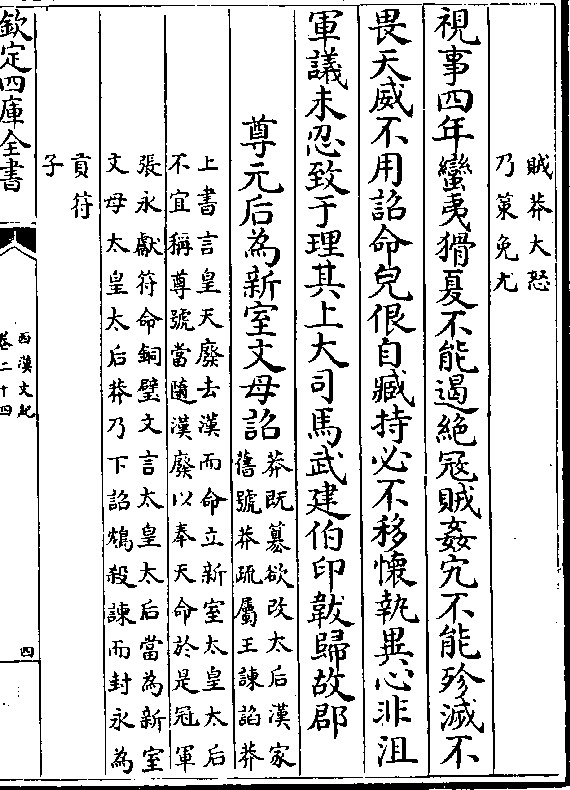 賊莽大怒
乃策免尤
視事四年蠻夷猾夏不能遏絶冦賊姦宄不能殄滅不
畏天威不用詔命皃佷自臧持必不移懷執異心非沮
軍議未忍致于理其上大司馬武建伯印韍歸故郡
尊元后為新室文母詔
莽既簒欲改太后漢家
舊號莽疏屬王諫諂莽
上書言皇天廢去漢而命立新室太皇太后
不宜稱尊號當隨漢廢以奉天命於是冠軍
張永獻符命銅璧文言太皇太后當為新室
文母太皇太后莽乃下詔鴆殺諫而封永為
貢符
子
欽定四庫全書
西漢文紀
卷二十四
四